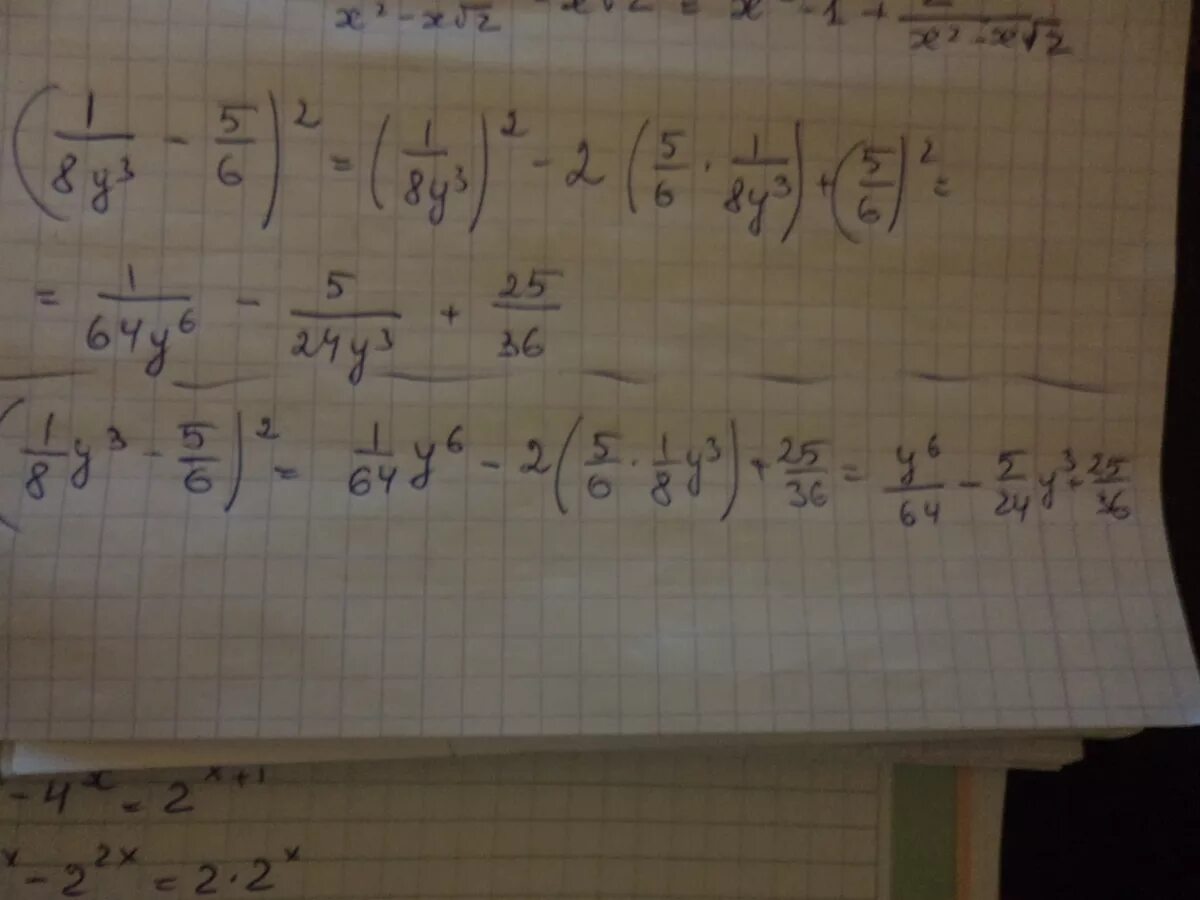 x² - x√2 - x√2 = x - 1 + 2/(x² - x√2)
(1/(8y³) - 5/6)² = (1/(8y³))² - 2(5/6 · 1/(8y³)) + (5/6)² =
= 1/(64y⁶) - 5/(24y³) + 25/36
(1/8 y³ - 5/6)² = 1/64 y⁶ - 2(5/6 · 1/8 y³) + 25/36 = y⁶/64 - 5/24 y³ + 25/36
- 4ˣ = 2ˣ⁺¹
ˣ - 2²ˣ = 2 · 2ˣ